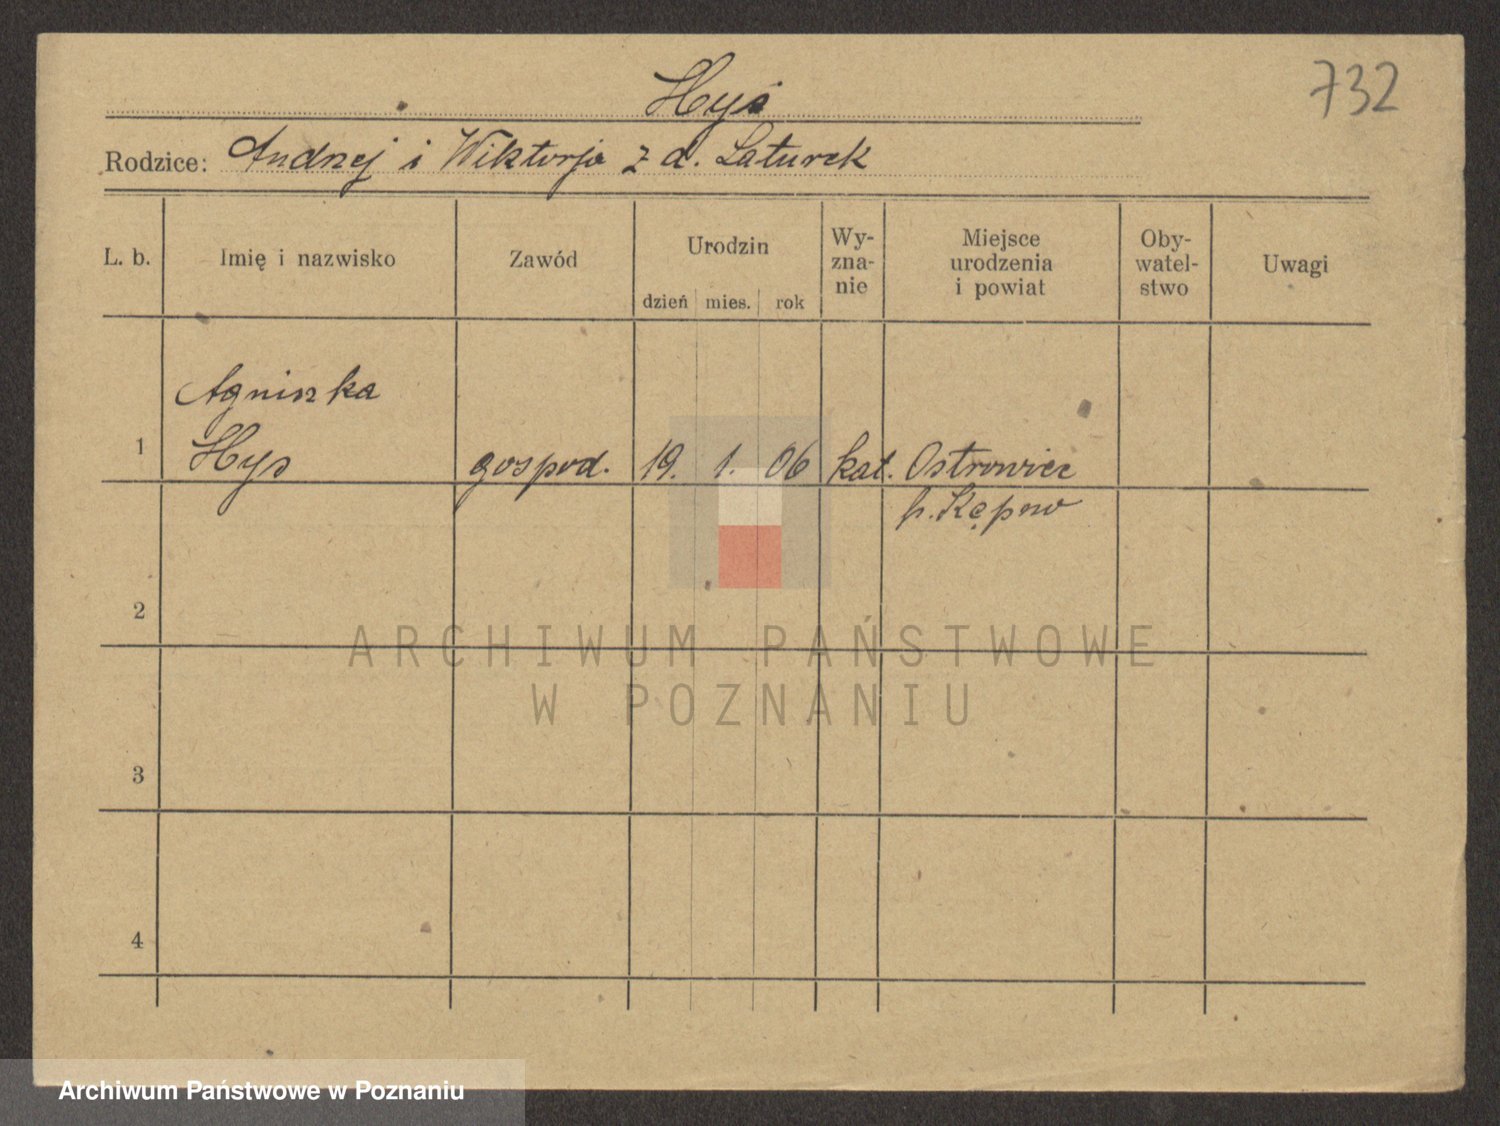 732
Hyś
Rodzice: Andrzej i Wiktorja z d. Laturek
L. b. Imię i nazwisko Zawód Urodzin dzień mies. rok Wy-zna-nie Miejsce urodzenia i powiat Oby-watel-stwo Uwagi
Agniszka
1 Hys gospod. 19. 1. 06 kat. Ostrowiec
p. Kępno
2
3
4
ARCHIWUM PAŃSTWOWE
W POZNANIU
Archiwum Państwowe w Poznaniu